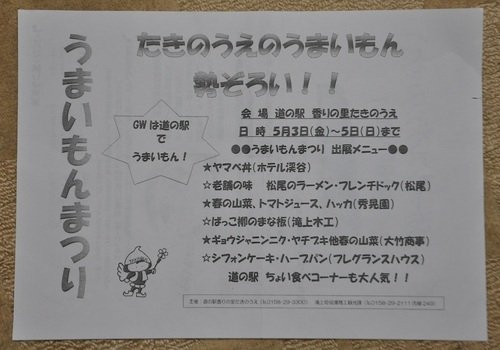 うまいもんまつり
たきのうえのうまいもん
勢ぞろい！！
GWは道の駅
で
うまいもん！
会 場 道の駅 香りの里たきのうえ
日 時 5月3日(金)～5日(日)まで
●●うまいもんまつり 出展メニュー●●
★ヤマベ丼(ホテル渓谷)
☆老舗の味 松尾のラーメン・フレンチドック(松尾)
★春の山菜、トマトジュース、ハッカ(秀晃園)
☆ばっこ柳のまな板(滝上木工)
★ギョウジャニンニク・ヤチブキ他春の山菜(大竹商事)
☆シフォンケーキ・ハーブパン(フレグランスハウス)
道の駅 ちょい食べコーナーも大人気！！
主催：道の駅香りの里たきのうえ(℡0158-29-3300) 滝上町役場商工観光課(℡0158-29-2111 内線249)